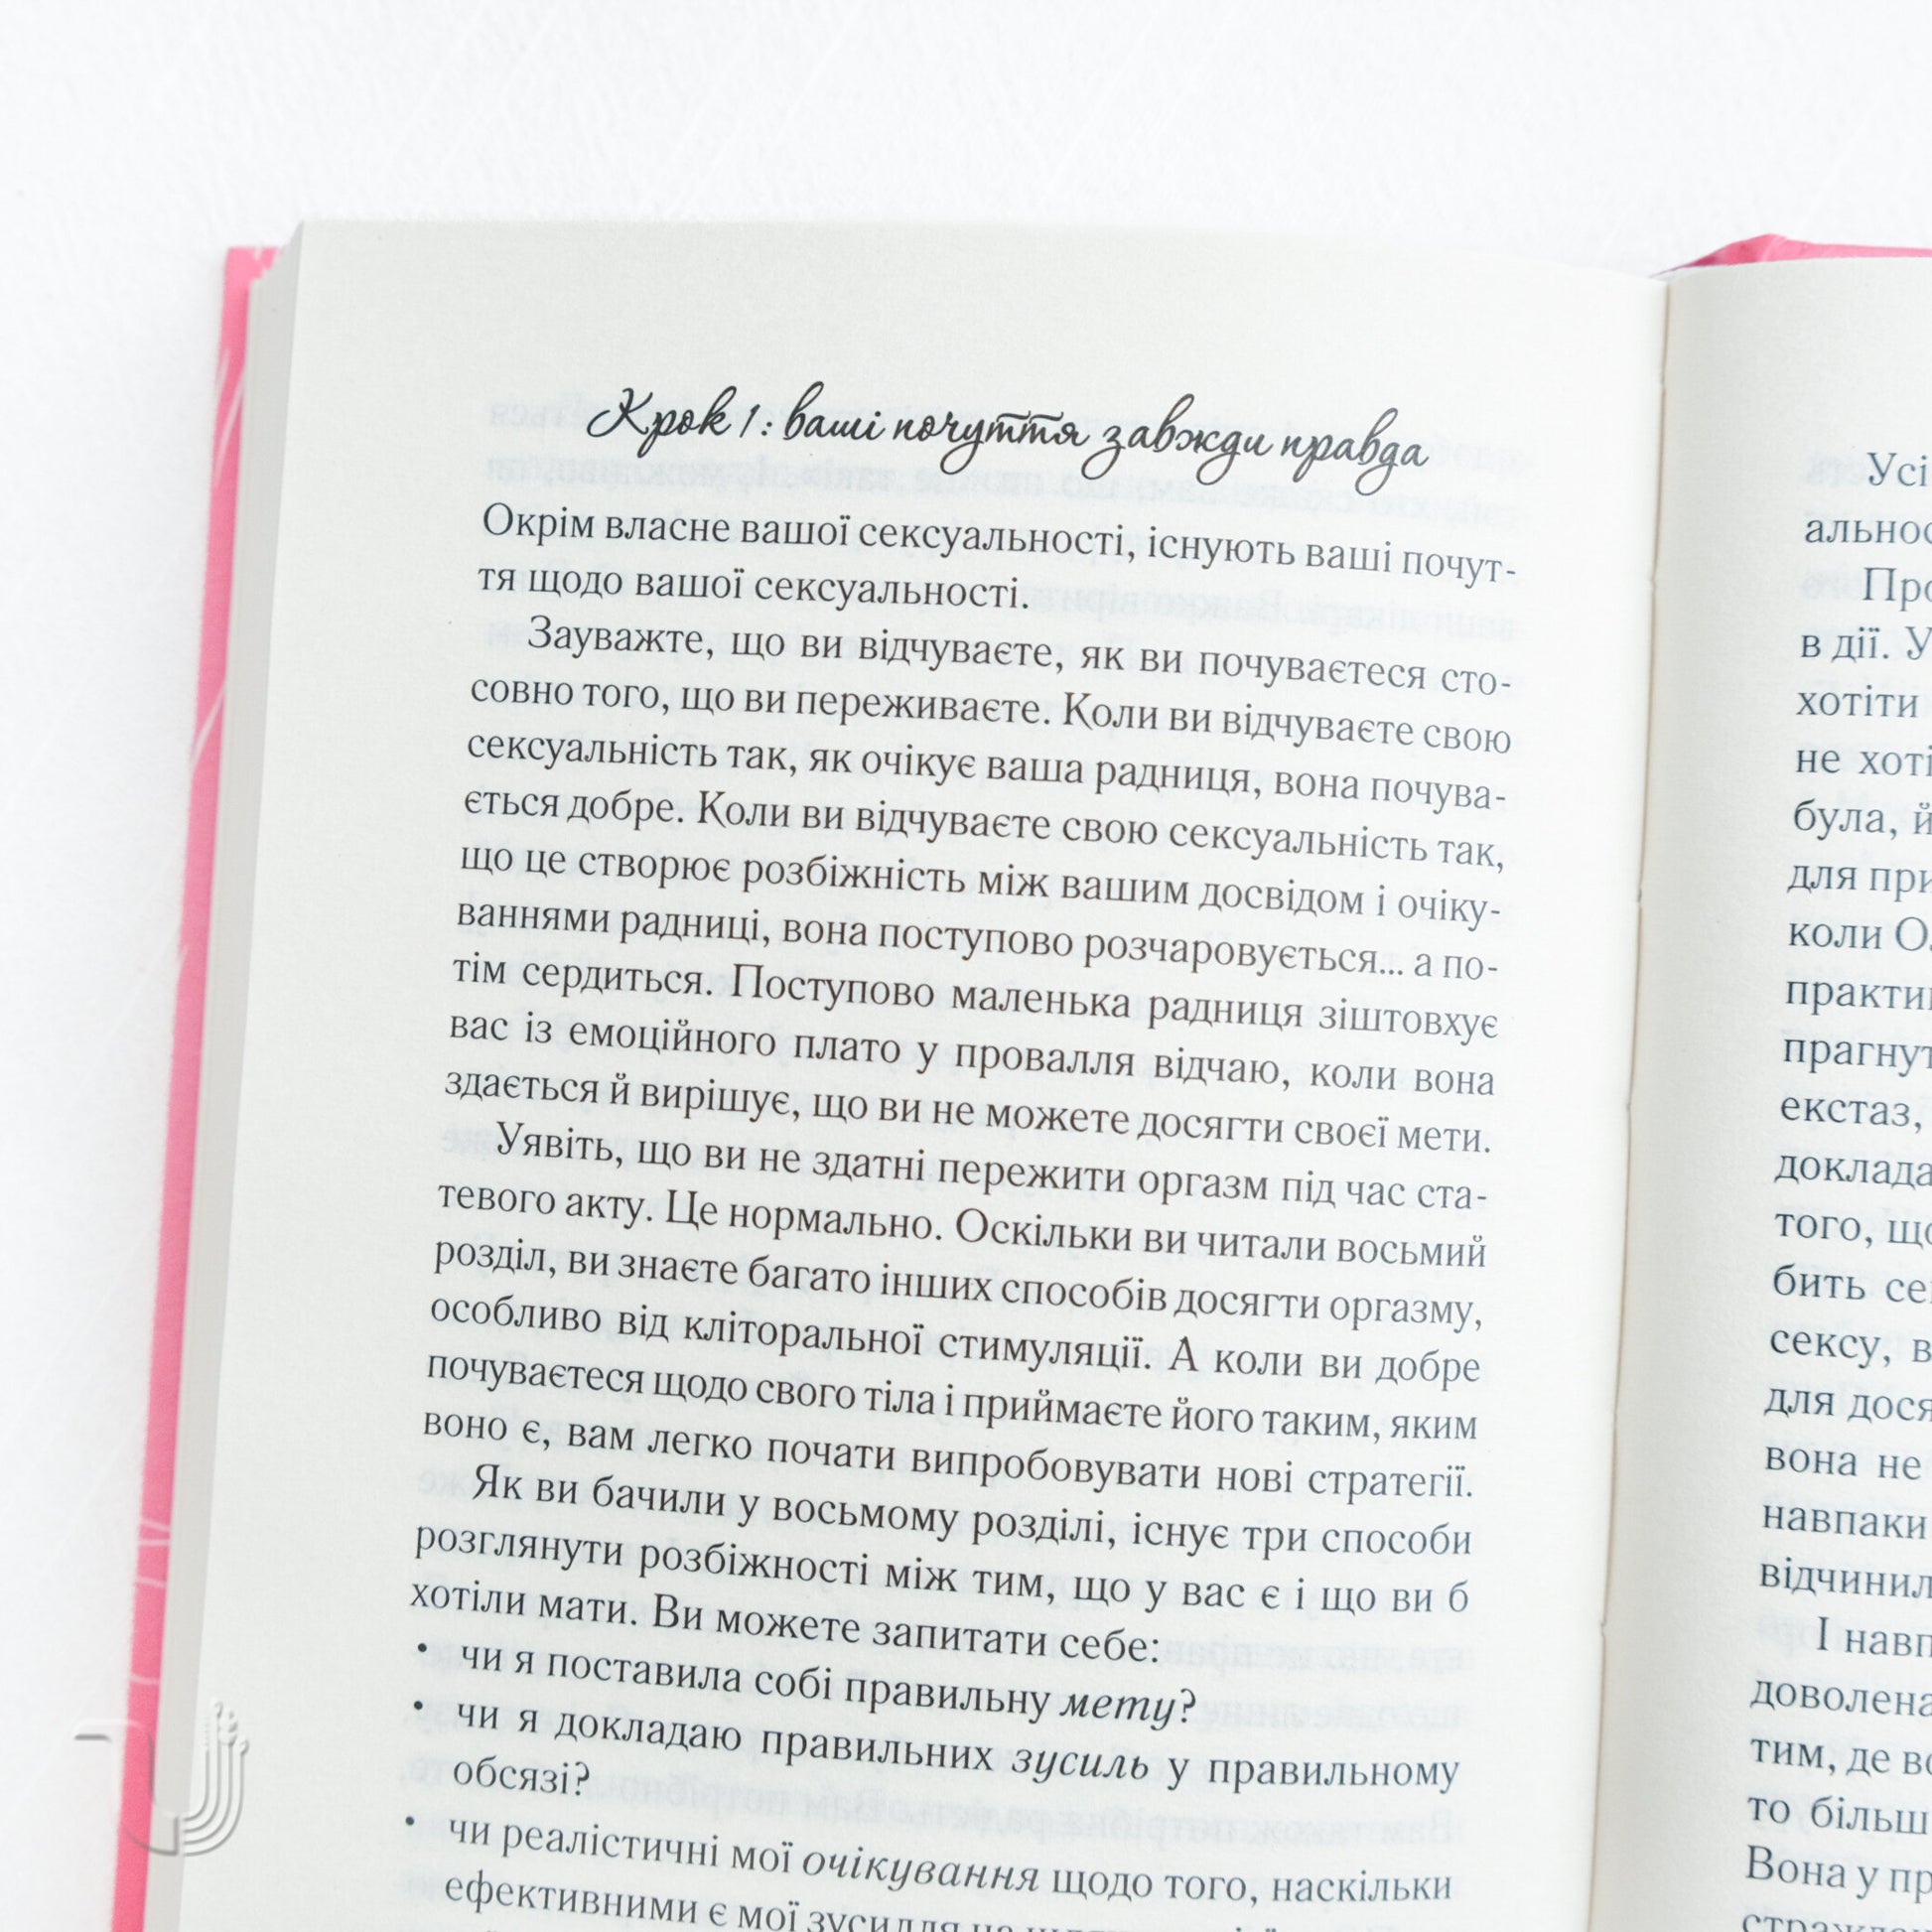 Крок 1: ваші почуття завжди правда
Окрім власне вашої сексуальності, існують ваші почут-
тя щодо вашої сексуальності.
Зауважте, що ви відчуваєте, як ви почуваєтеся сто-
совно того, що ви переживаєте. Коли ви відчуваєте свою
сексуальність так, як очікує ваша радниця, вона почува-
ється добре. Коли ви відчуваєте свою сексуальність так,
що це створює розбіжність між вашим досвідом і очіку-
ваннями радниці, вона поступово розчаровується... а по-
тім сердиться. Поступово маленька радниця зіштовхує
вас із емоційного плато у провалля відчаю, коли вона
здається й вирішує, що ви не можете досягти своєї мети.
Уявіть, що ви не здатні пережити оргазм під час ста-
тевого акту. Це нормально. Оскільки ви читали восьмий
розділ, ви знаєте багато інших способів досягти оргазму,
особливо від кліторальної стимуляції. А коли ви добре
почуваєтеся щодо свого тіла і приймаєте його таким, яким
воно є, вам легко почати випробовувати нові стратегії.
Як ви бачили у восьмому розділі, існує три способи
розглянути розбіжності між тим, що у вас є і що ви б
хотіли мати. Ви можете запитати себе:
• чи я поставила собі правильну мету?
• чи я докладаю правильних зусиль у правильному
обсязі?
• чи реалістичні мої очікування щодо того, наскільки
ефективними є мої зусилля
Усі
в дії. У
хотіти
не хоті
була, й
для при
коли О
екстаз,
того, що
бить се
сексу, в
для дося
вона не
навпаки
І навп
доволена
тим, де во
то більш
Вона у пр